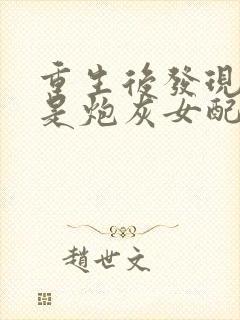 重生後發現
是炮灰女配
趙世文